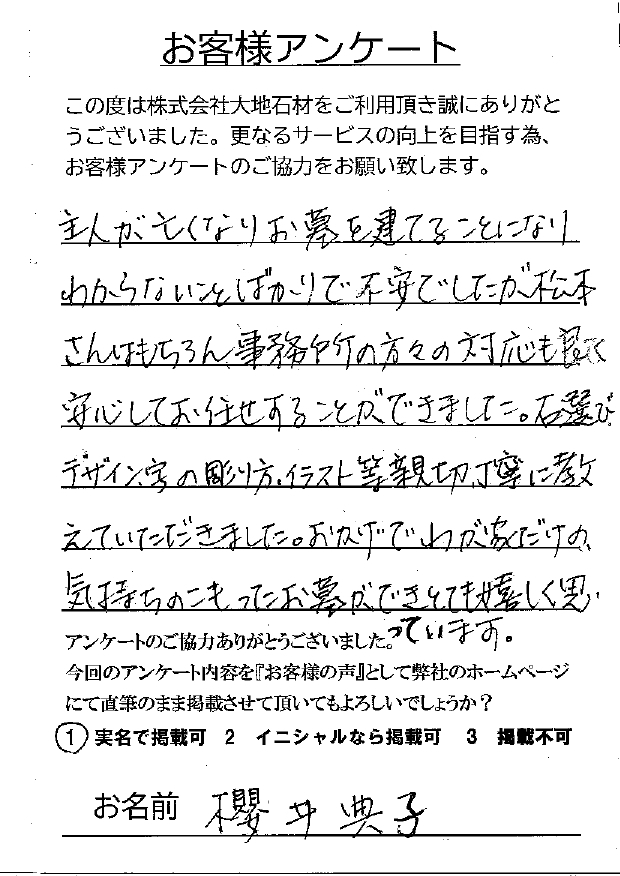 お客様アンケート
この度は株式会社大地石材をご利用頂き誠にありがと
うございました。更なるサービスの向上を目指す為、
お客様アンケートのご協力をお願い致します。
主人が亡くなりお墓を建てることになり
わからないことばかりで不安でしたが松本
さんはもちろん、事務所の方々の対応も良く
安心してお任せすることができました。石選び、
デザイン字の彫り方、イラスト等親切、丁寧に教
えていただきました。おかげでわが家だけの、
気持ちのこもったお墓ができとても嬉しく思
っています。
アンケートのご協力ありがとうございました。
今回のアンケート内容を『お客様の声』として弊社のホームページ
にて直筆のまま掲載させて頂いてもよろしいでしょうか？
1 実名で掲載可 2 イニシャルなら掲載可 3 掲載不可
お名前 櫻井典子